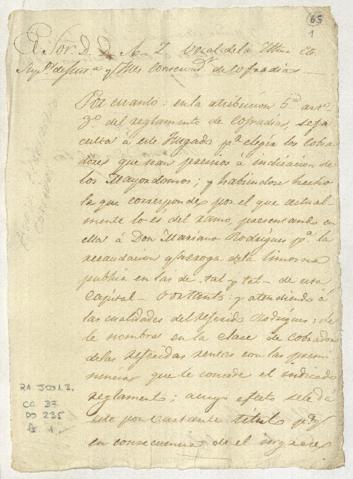 65
1
El Sor. D. D. A. Z. Vocal de la
Por cuanto: en la atribucion 5a. art.
7o. del reglamento de cofradias, se fa
culta á este Juzgado pa. elegir los cobra
dores que sean precisos á indicacion de
los Mayordomos; y habiendose hecho
la que corresponde por el que actual
mente lo es del ramo, presentando en
ella á Don Mariano Rodrigues pa. la
recaudacion de limosna
publica en las de tal y tal de esta
Capital. Por tanto: y atendiendo á
las cualidades del referido Rodrigues: se
le nombra en la clase de cobrador
de las referidas rentas con las
que le concede el indicado
reglamento; a cuyo efecto se le da
este por bastante titulo pa. qe.
en consecuencia de el
RA JSO1.3.
CC 37
DO 235
fs 1